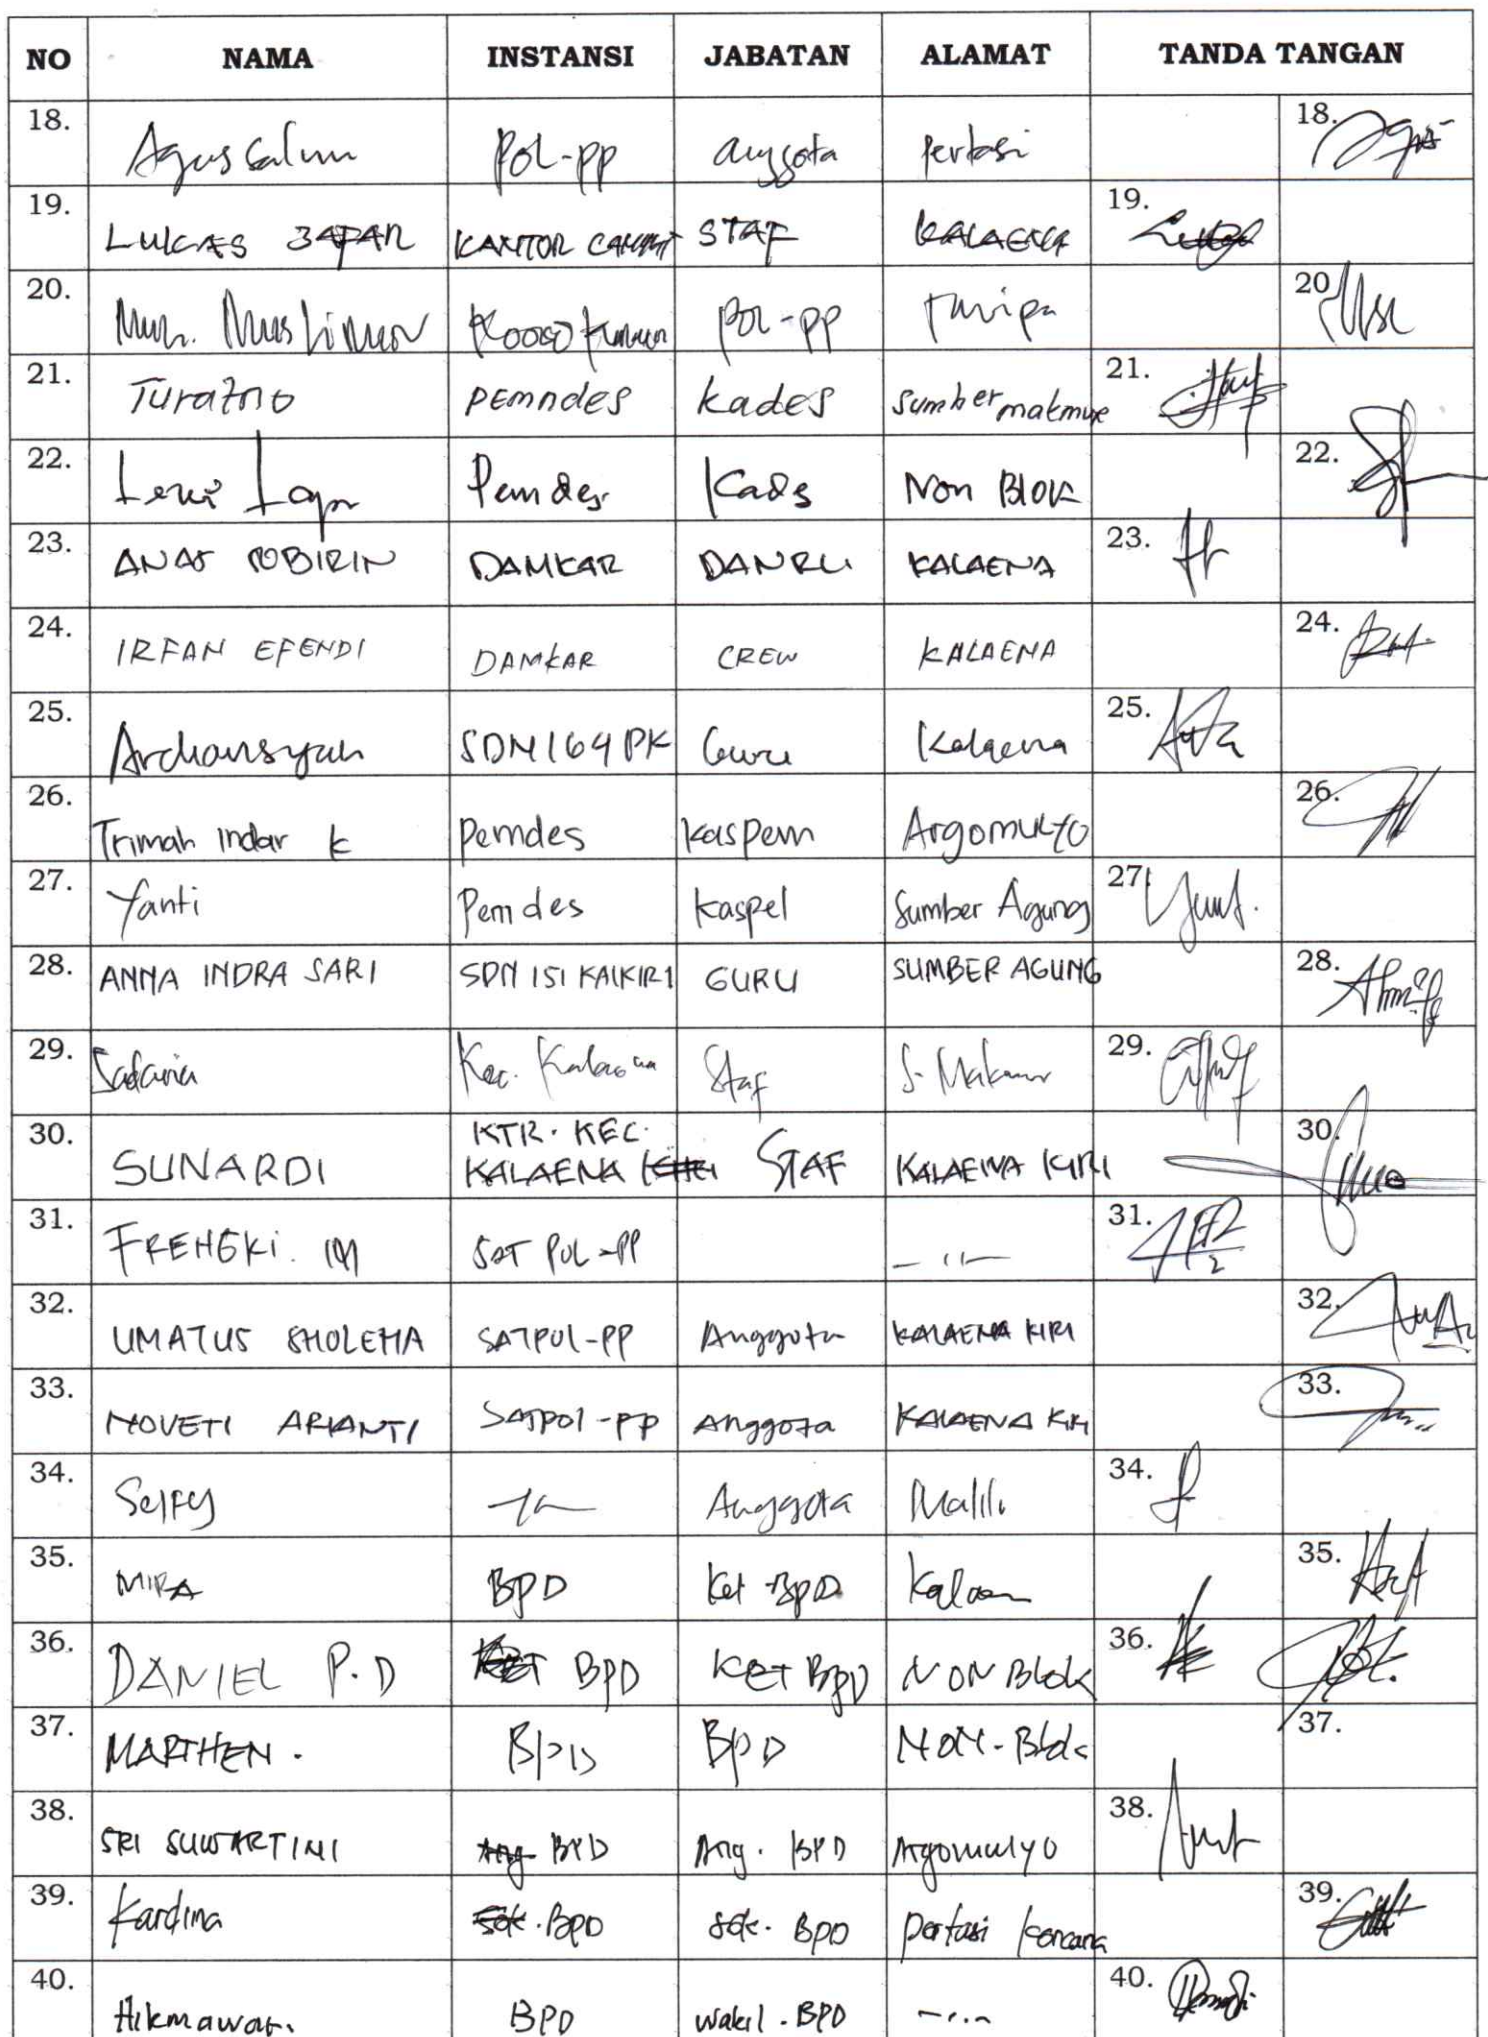 NO NAMA INSTANSI JABATAN ALAMAT TANDA TANGAN
18. Agus Salim Pol-pp anggota Pertasi 18.
19. LUKAS JAPAR KANTOR CAMAT STAF KALAENA 19.
20. Muh. Muslimin pol-pp 20
21. Turatno pemndes kades sumber makmur 21.
22. Pemdes Kads Non Blok 22.
23. ANAS SOBIRIN DAMKAR DANRU KALAENA 23.
24. IRFAN EFENDI DAMKAR CREW KALAENA 24.
25. Ardiansyah SDN 164 PK Guru Kalaena 25.
26. Trimah Indar k Pemdes kaspem Argomulyo 26.
27. Yanti Pemdes kaspel Sumber Agung 27.
28. ANNA INDRA SARI SDN 151 KALKIRI GURU SUMBER AGUNG 28.
29. Kec. Kalaena Staf S. Makmur 29.
30. SUNARDI KTR. KEC. KALAENA STAF KALAENA KIRI 30.
31. FRENGKI. M SAT POL-PP -"- 31.
32. UMATUS SHOLEHA SATPOL-PP Anggota KALAENA KIRI 32.
33. NOVETI ARIANTI SATPOL-PP Anggota KALAENA KIRI 33.
34. Selfy Anggota Malili 34.
35. MIRA BPD Ket BPD Kalaen 35.
36. DANIEL P.D BPD KET BPD NON Blok 36.
37. MARTHEN. BPD BPD NON-Blok 37.
38. SRI SUWARTINI BPD Ang. BPD Argomulyo 38.
39. Kardina BPD sek. BPD Pertasi Kencana 39.
40. Hikmawati BPD wakil. BPD -"- 40.